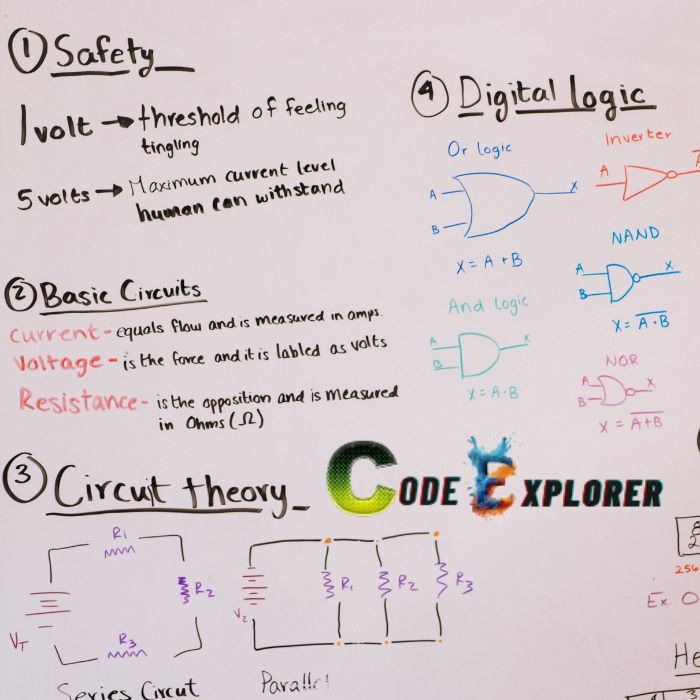 ① Safety
1 volt → threshold of feeling
tingling
5 volts → Maximum current level
human can withstand
② Basic Circuits
Current - equals flow and is measured in amps.
Voltage - is the force and it is labled as volts
Resistance - is the opposition and is measured
in Ohms (Ω)
③ Circut theory
R₁
R₂
R₃
V_T
Series Circut
V₂
R₁
R₂
R₃
Parallel
④ Digital logic
Or logic
A
B
X
X = A + B
Inverter
A
A̅
And logic
A
B
X
X = A·B
NAND
A
B
X
X = \overline{A·B}
NOR
A
B
X
X = \overline{A+B}
CODE EXPLORER
8
2
256
Ex. 0
He